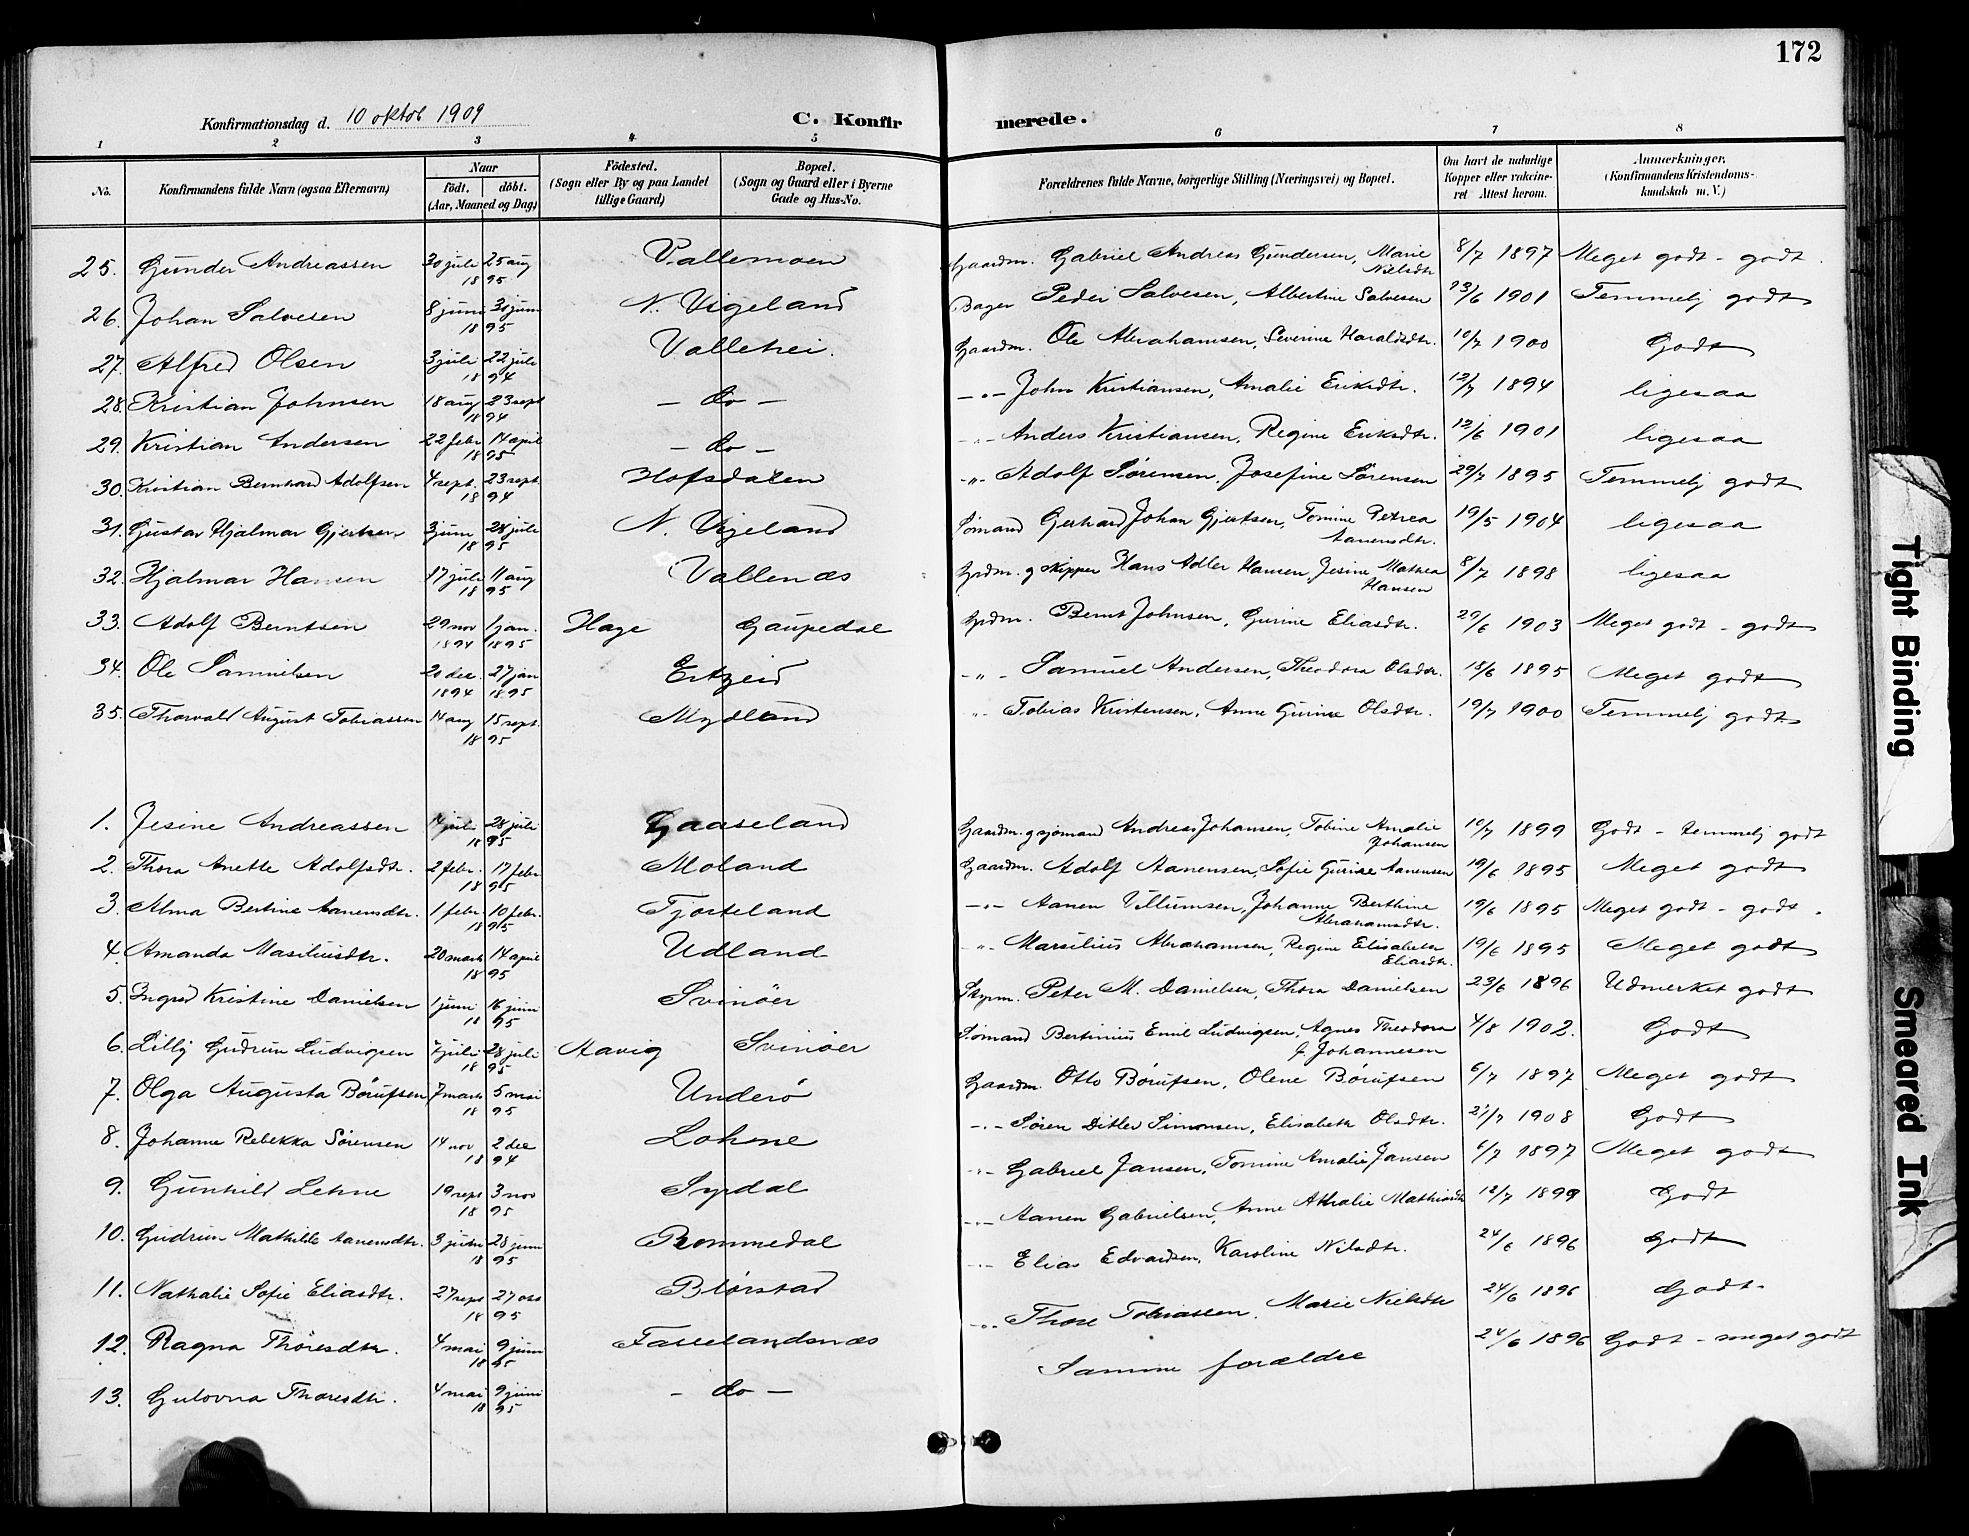 172
Konfirmationsdag d. 10 oktob 1909
C. Konfirmerede.
1 2 3 4 5 6 7 8
No. Konfirmandens fulde Navn (ogsaa Efternavn) Naar födt. döbt. (Aar, Maaned og Dag) Födested. (Sogn eller By og paa Landet tillige Gaard) Bopæl. (Sogn og Gaard eller i Byerne Gade og Hus-No. Forældrenes fulde Navne, borgerlige Stilling (Næringsvei) og Bopæl. Om havt de naturlige Kopper eller vaccineret Attest herom. Anmærkninger. (Konfirmandens Kristendomskundskab m. V.)
25. Gunder Andreassen 30 juli 25 aug 1895 Vallemoen Gaardm. Gabriel Andreas Gundersen, Marie Nielsdtr 8/7 1897 Meget godt - godt.
26. Johan Salvesen 8 juni 30 juni 1895 N. Vigeland Bager Peder Salvesen, Albertine Salvesen 23/6 1901 Temmelj godt
27. Alfred Olsen 3 juli 22 juli 1894 Vallehei. Gaardm. Ole Abrahamsen, Severine Haraldsdtr. 10/7 1900 Godt
28. Kristian Johnsen 18 aug 23 sept 1894 - do - -"- John Kristiansen, Amalie Eriksdtr. 12/7 1894 ligesaa
29. Kristian Andersen 22 febr 14 april 1895 - do - -"- Anders Kristiansen, Regine Eriksdtr. 12/6 1901 ligesaa
30. Kristian Bernhard Adolfsen 4 sept. 23 sept. 1894 Hofsdalen -"- Adolf Sørensen, Josefine Sørensen 29/7 1895 Temmelj godt
31. Gustav Hjalmar Gjertsen 3 juni 28 juli 1895 N. Vigeland Sømand Gerhard Johan Gjertsen, Tomine Petrea Aanensdtr. 19/5 1904 ligesaa
32. Hjalmar Hansen 17 juli 11 aug 1895 Vallenæs Grdm. g skipper Hans Adler Hansen, Jesine Mathea Hansen 8/7 1898 ligesaa
33. Adolf Berntsen 29 nov 1894 1 jan. 1895 Hage Gaupedal Grdm. Bernt Johnsen, Gurine Eliasdtr. 29/6 1903 Meget godt - godt
34. Ole Samuelsen 20 dec. 1894 27 jan 1895 Eitzeid -"- Samuel Andersen, Theodora Olsdtr. 18/6 1895 Meget godt
35. Thorvald August Tobiassen 14 aug 15 sept. 1895 Mydland -"- Tobias Kristensen, Anne Gurine Olsdtr. 19/7 1900 Temmelj godt
1. Jesine Andreassen 14 juli 28 juli 1895 Gaaseland Gaardm. g sjømand Andreas Johansen, Tobine Amalie Johansen 10/7 1899 Godt - temmelj godt
2. Thora Anette Adolfsdtr. 2 febr. 17 febr. 1895 Moland Gaardm. Adolf Aanensen, Sofie Gurine Aanensen 19/6 1895 Meget godt
3. Alma Bertine Aanensdtr. 1 febr. 10 febr. 1895 Tjorteland -"- Aanen Villumsen, Johanne Berthine Abrahamsdtr. 19/6 1895 Meget godt - godt.
4. Amanda Masiliusdtr. 20 marts 14 april 1895 Udland -"- Marsilius Abrahamsen, Regine Elisabeth Eliasdtr. 19/6 1895 Meget godt
5. Ingrid Kristine Danielsen 1 juni 16 juni 1895 Svinöer Peter M. Danielsen, Thora Danielsen 23/6 1896 Udmerket godt
6. Lilly Gudrun Ludvigsen 7 juli 28 juli 1895 Aavig Svinöer Sømand Bertinius Emil Ludvigsen, Agnes Theodora f. Johannesen 4/8 1902. Godt
7. Olga Augusta Børufsen 7 marts 5 mai 1895 Underö Gaardm. Otto Børufsen, Olene Børufsen 6/7 1897 Meget godt
8. Johanne Rebekka Sørensen 14 nov 2 dec 1894 Lohne -"- Søren Ditlev Simonsen, Elisabeth Olsdtr. 21/7 1908 Godt
9. Gunhild Lehne 19 sept 3 nov 1895 Syrdal -"- Gabriel Jansen, Tomine Amalie Jansen 6/7 1897 Meget godt
10. Gudrun Mathilde Aanensdtr. 3 juni 28 juni 1895 Rommedal -"- Aanen Gabrielsen, Anne Athalie Mathiasdtr 12/7 1899 Godt
11. Nathalie Sofie Eliasdtr. 27 sept 27 okt 1895 Blörstad -"- Elias Edvardsen, Karoline Nilsdtr. 24/6 1896 Godt
12. Ragna Thöresdtr. 4 mai 9 juni 1895 Faselandsnæs -"- Thore Tobiassen, Marie Nielsdtr 24/6 1896 Godt.
13. Gulovna Thoresdtr. 4 mai 9 juni 1895 - do - Samme forældre 24/6 1896 Godt - meget godt
Tight Binding
Smeared Ink